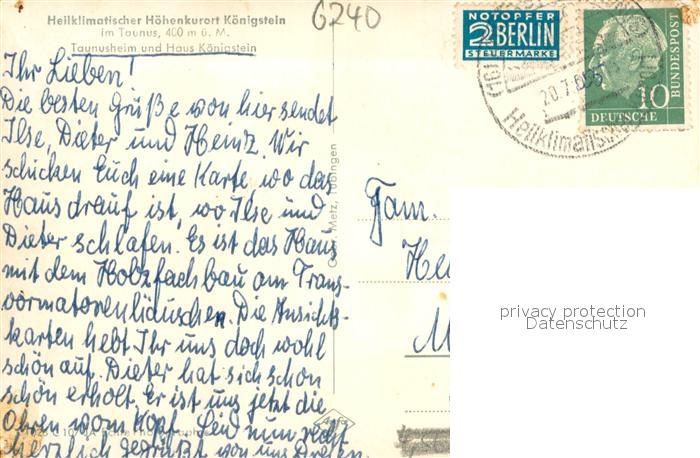 Heilklimatischer Höhenkurort Königstein
im Taunus, 400 m ü. M.
Taunusheim und Haus Königstein
6240
NOTOPFER
2 BERLIN
STEUERMARKE
10
DEUTSCHE
BUNDESPOST
20.7.
Heilklimatisch
Ihr Lieben!
Die besten Grüße von hier sendet
Ilse, Dieter und Heinz. Wir
schicken Euch eine Karte, wo das
Haus drauf ist, wo Ilse und
Dieter schlafen. Es ist das Haus
mit dem Holzfachbau am Trans-
vormatorenhäuschen. Die Ansichts-
karten hebt Ihr uns doch wohl
schön auf. Dieter hat sich schon
schön erholt. Er ist uns jetzt die
Ohren vom Kopf. Seid nun recht
herzlich gegrüßt von uns Dreien.
Metz, Tübingen
Fam.
He
M
privacy protection
Datenschutz